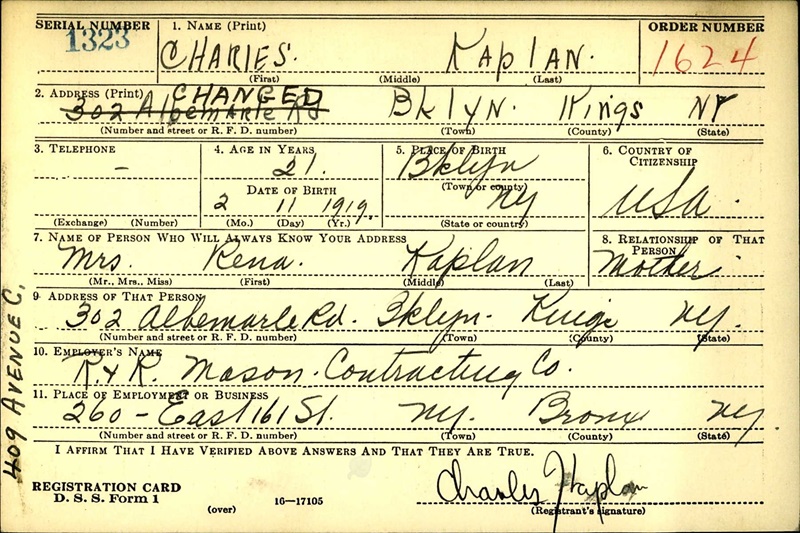 SERIAL NUMBER 1. NAME (Print) ORDER NUMBER
1323 CHARlES. KAPlAN. 1624
(First) (Middle) (Last)
2. ADDRESS (Print) CHANGED
302 Albemarle Rd BKlYN. Kings NY
(Number and street or R. F. D. number) (Town) (County) (State)
3. TELEPHONE 4. AGE IN YEARS 5. PLACE OF BIRTH 6. COUNTRY OF CITIZENSHIP
– 21. Bklyn
(Town or county)
DATE OF BIRTH
2 11 1919. NY USA.
(Exchange) (Number) (Mo.) (Day) (Yr.) (State or country)
7. NAME OF PERSON WHO WILL ALWAYS KNOW YOUR ADDRESS 8. RELATIONSHIP OF THAT PERSON
Mrs. Rena. Kaplan Mother
(Mr., Mrs., Miss) (First) (Middle) (Last)
9 ADDRESS OF THAT PERSON
302 Albemarle Rd. Bklyn. Kings NY.
(Number and street or R. F. D. number) (Town) (County) (State)
10. EMPLOYER'S NAME
R & R. Mason. Contracting Co.
11. PLACE OF EMPLOYMENT OR BUSINESS
260 – East 161 St. NY. Bronx NY.
(Number and street or R. F. D. number) (Town) (County) (State)
I AFFIRM THAT I HAVE VERIFIED ABOVE ANSWERS AND THAT THEY ARE TRUE.
REGISTRATION CARD
D. S. S. Form 1
(over) 16—17105
Charles Kaplan
(Registrant's signature)
409 AVENUE C,